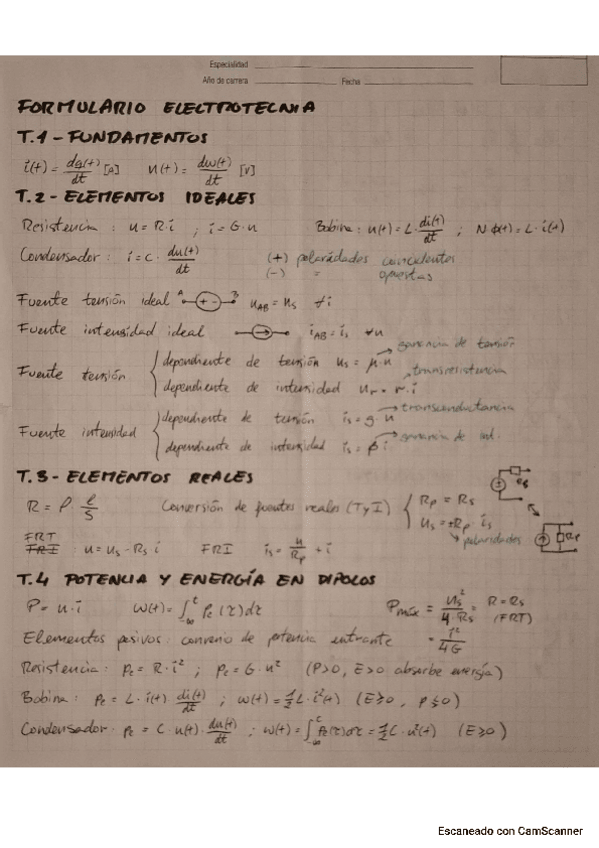 Especialidad
Año de carrera Fecha
FORMULARIO ELECTROTECNIA
T.1 - FUNDAMENTOS
i(t) = dq(t)/dt [A] u(t) = dw(t)/dt [V]
T.2 - ELEMENTOS IDEALES
Resistencia : u = R·i ; i = G·u Bobina : u(t) = L·di(t)/dt ; Nϕ(t) = L·i(t)
Condensador : i = C·du(t)/dt (+) polaridades coincidentes
(-) = opuestas
Fuente tensión ideal A + - B u_AB = u_s ∀i
Fuente intensidad ideal i_AB = i_s ∀u
Fuente tensión { dependiente de tensión u_s = μ·u → ganancia de tensión
dependiente de intensidad u_r = r·i → transresistencia
Fuente intensidad { dependiente de tensión i_s = g·u → transconductancia
dependiente de intensidad i_s = β i → ganancia de int.
T.3 - ELEMENTOS REALES
R = ρ · l/S Conversión de fuentes reales (T y I) { R_p = R_s
u_s = ±R_p i_s → polaridades
R_s
R_p
FRT
FRI : u = u_s - R_s i FRI i_s = u/R_p + i
T.4 POTENCIA Y ENERGÍA EN DIPOLOS
P = u·i W(t) = ∫_-∞^t p_e(τ)dτ P_máx = u_s²/4·R_s = R = R_s (FRT)
= i²/4G
Elementos pasivos : convenio de potencia entrante
Resistencia : p_e = R·i² ; p_e = G·u² (P>0, E>0 absorbe energía)
Bobina : p_e = L·i(t) di(t)/dt ; w(t) = 1/2 L·i²(t) (E≥0, p≤0)
Condensador : p_e = C·u(t)·du(t)/dt ; w(t) = ∫_-∞^t p_e(τ)dτ = 1/2 C·u²(t) (E≥0)
Escaneado con CamScanner